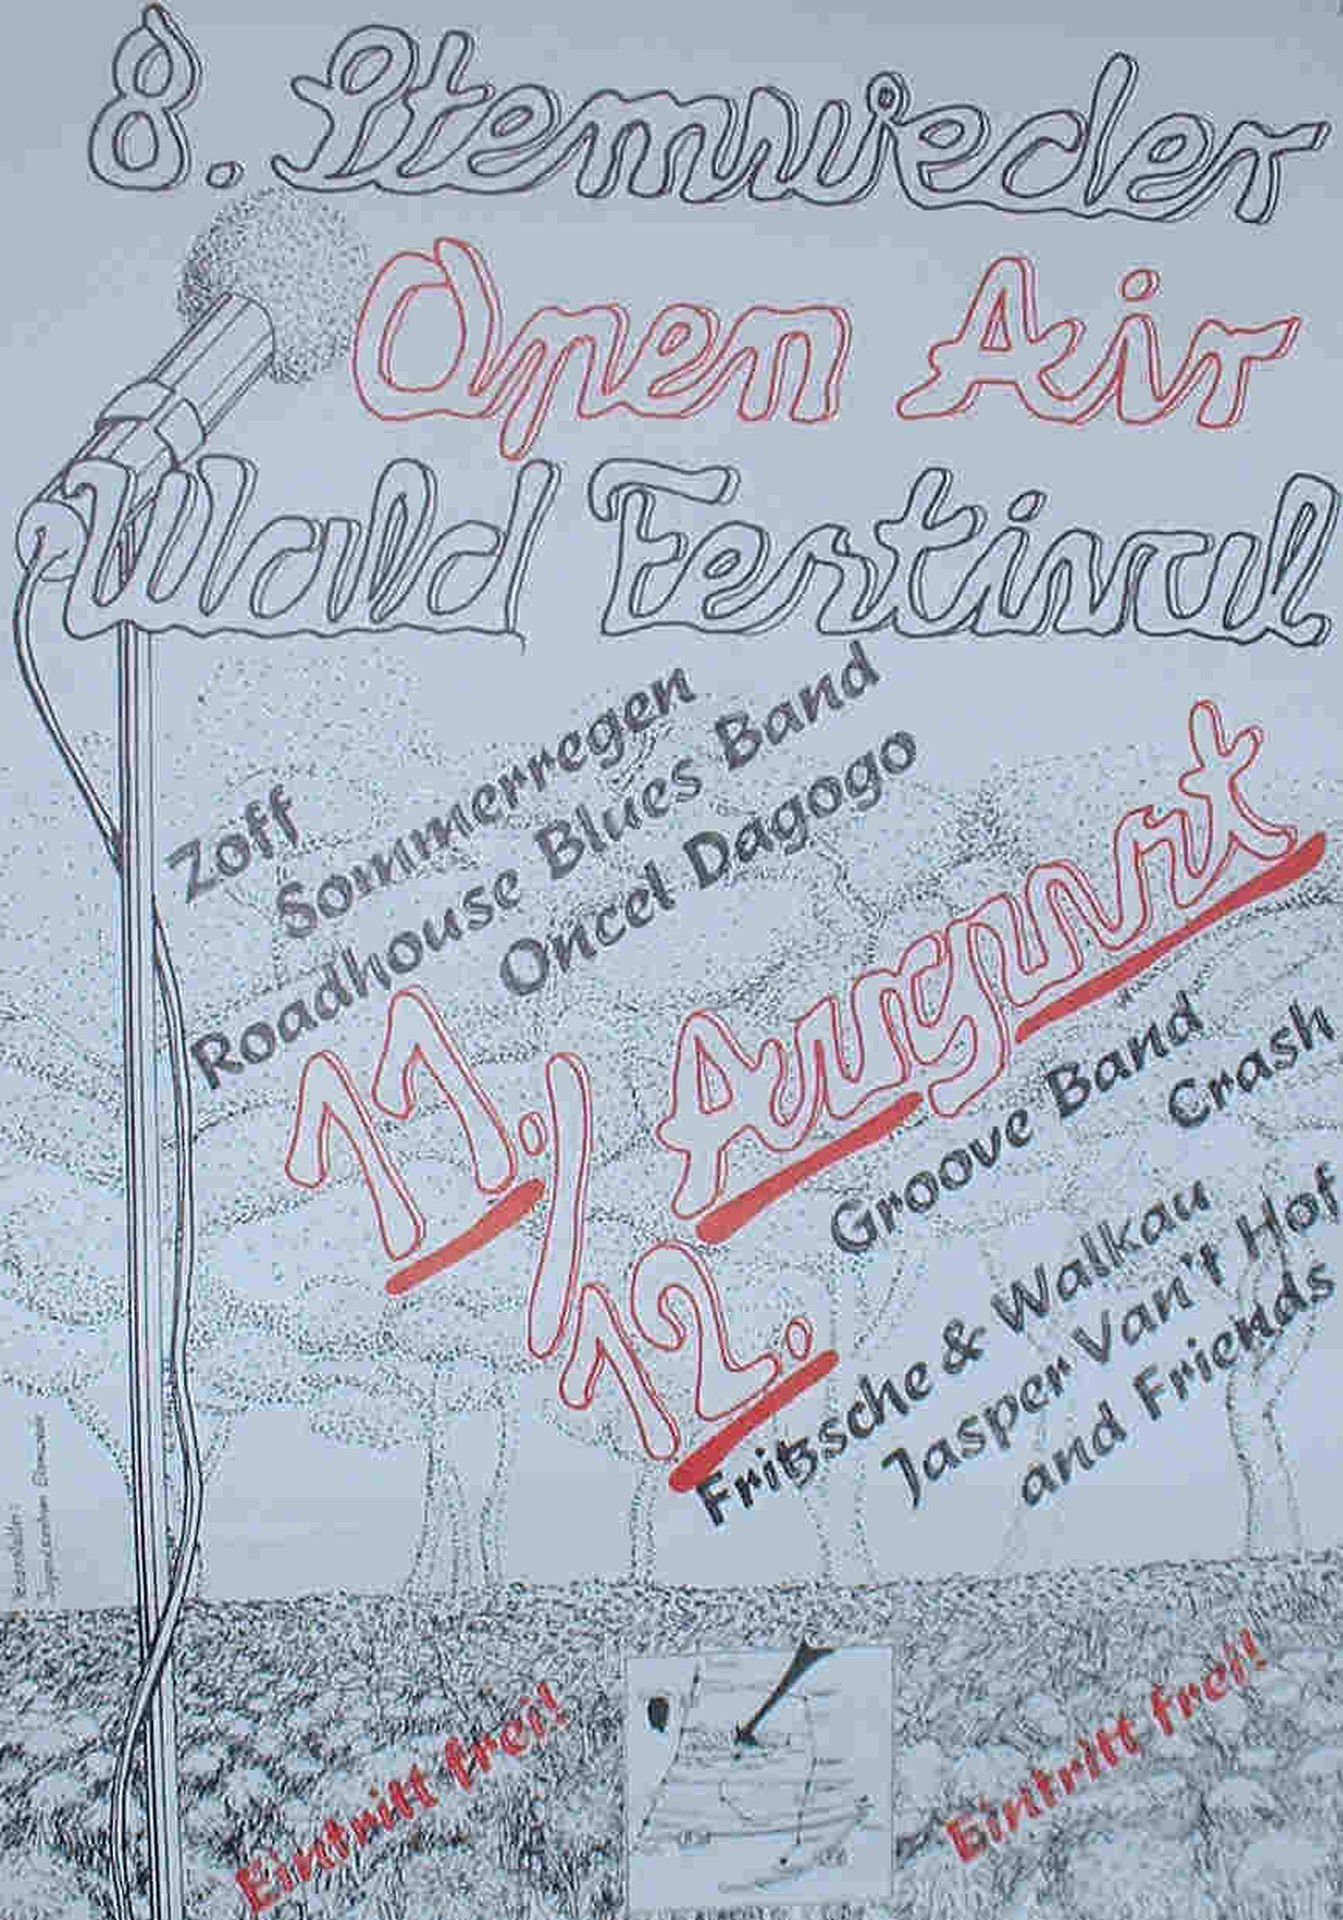 8. Stemweder
Open Air
Wald Festival
Zoff
Sommerregen
Roadhouse Blues Band
Oncel Dagogo
11./
12.
August
Groove Band
Crash
Fritzsche & Walkau
Jasper Van't Hof
and Friends
Eintritt frei!
Eintritt frei!